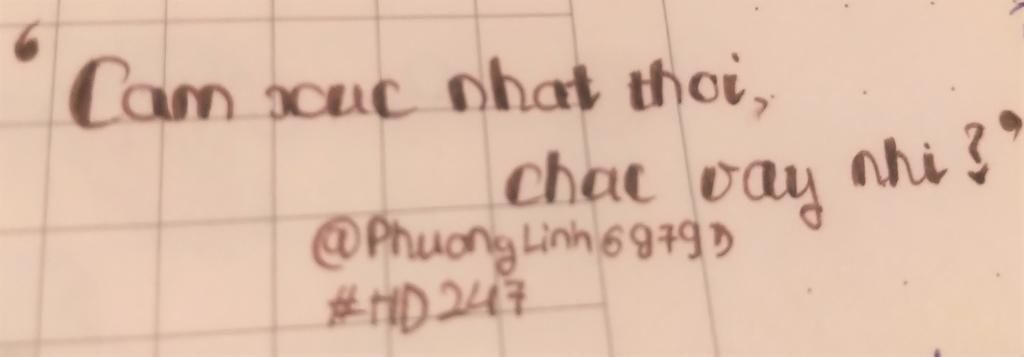 ‘Cam xuc nhat thoi,
chac vay nhi?’
@PhuongLinh6979D
#HD247